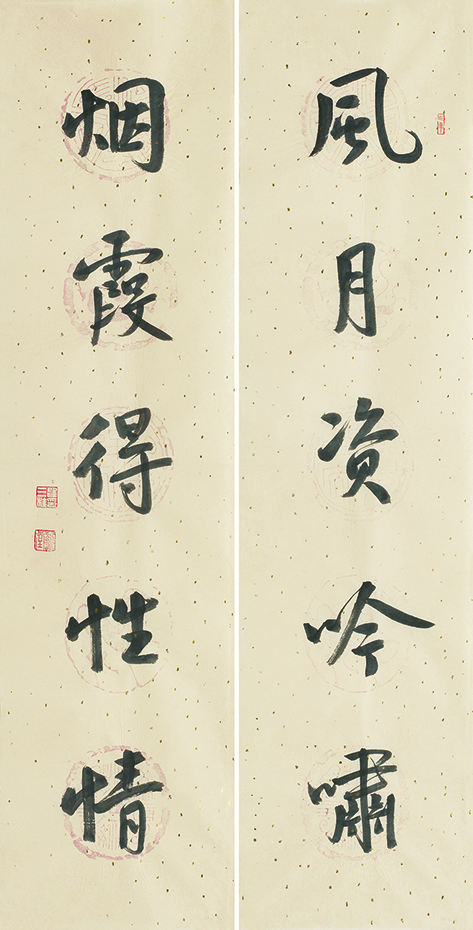 風月资吟嘯
烟霞得性情